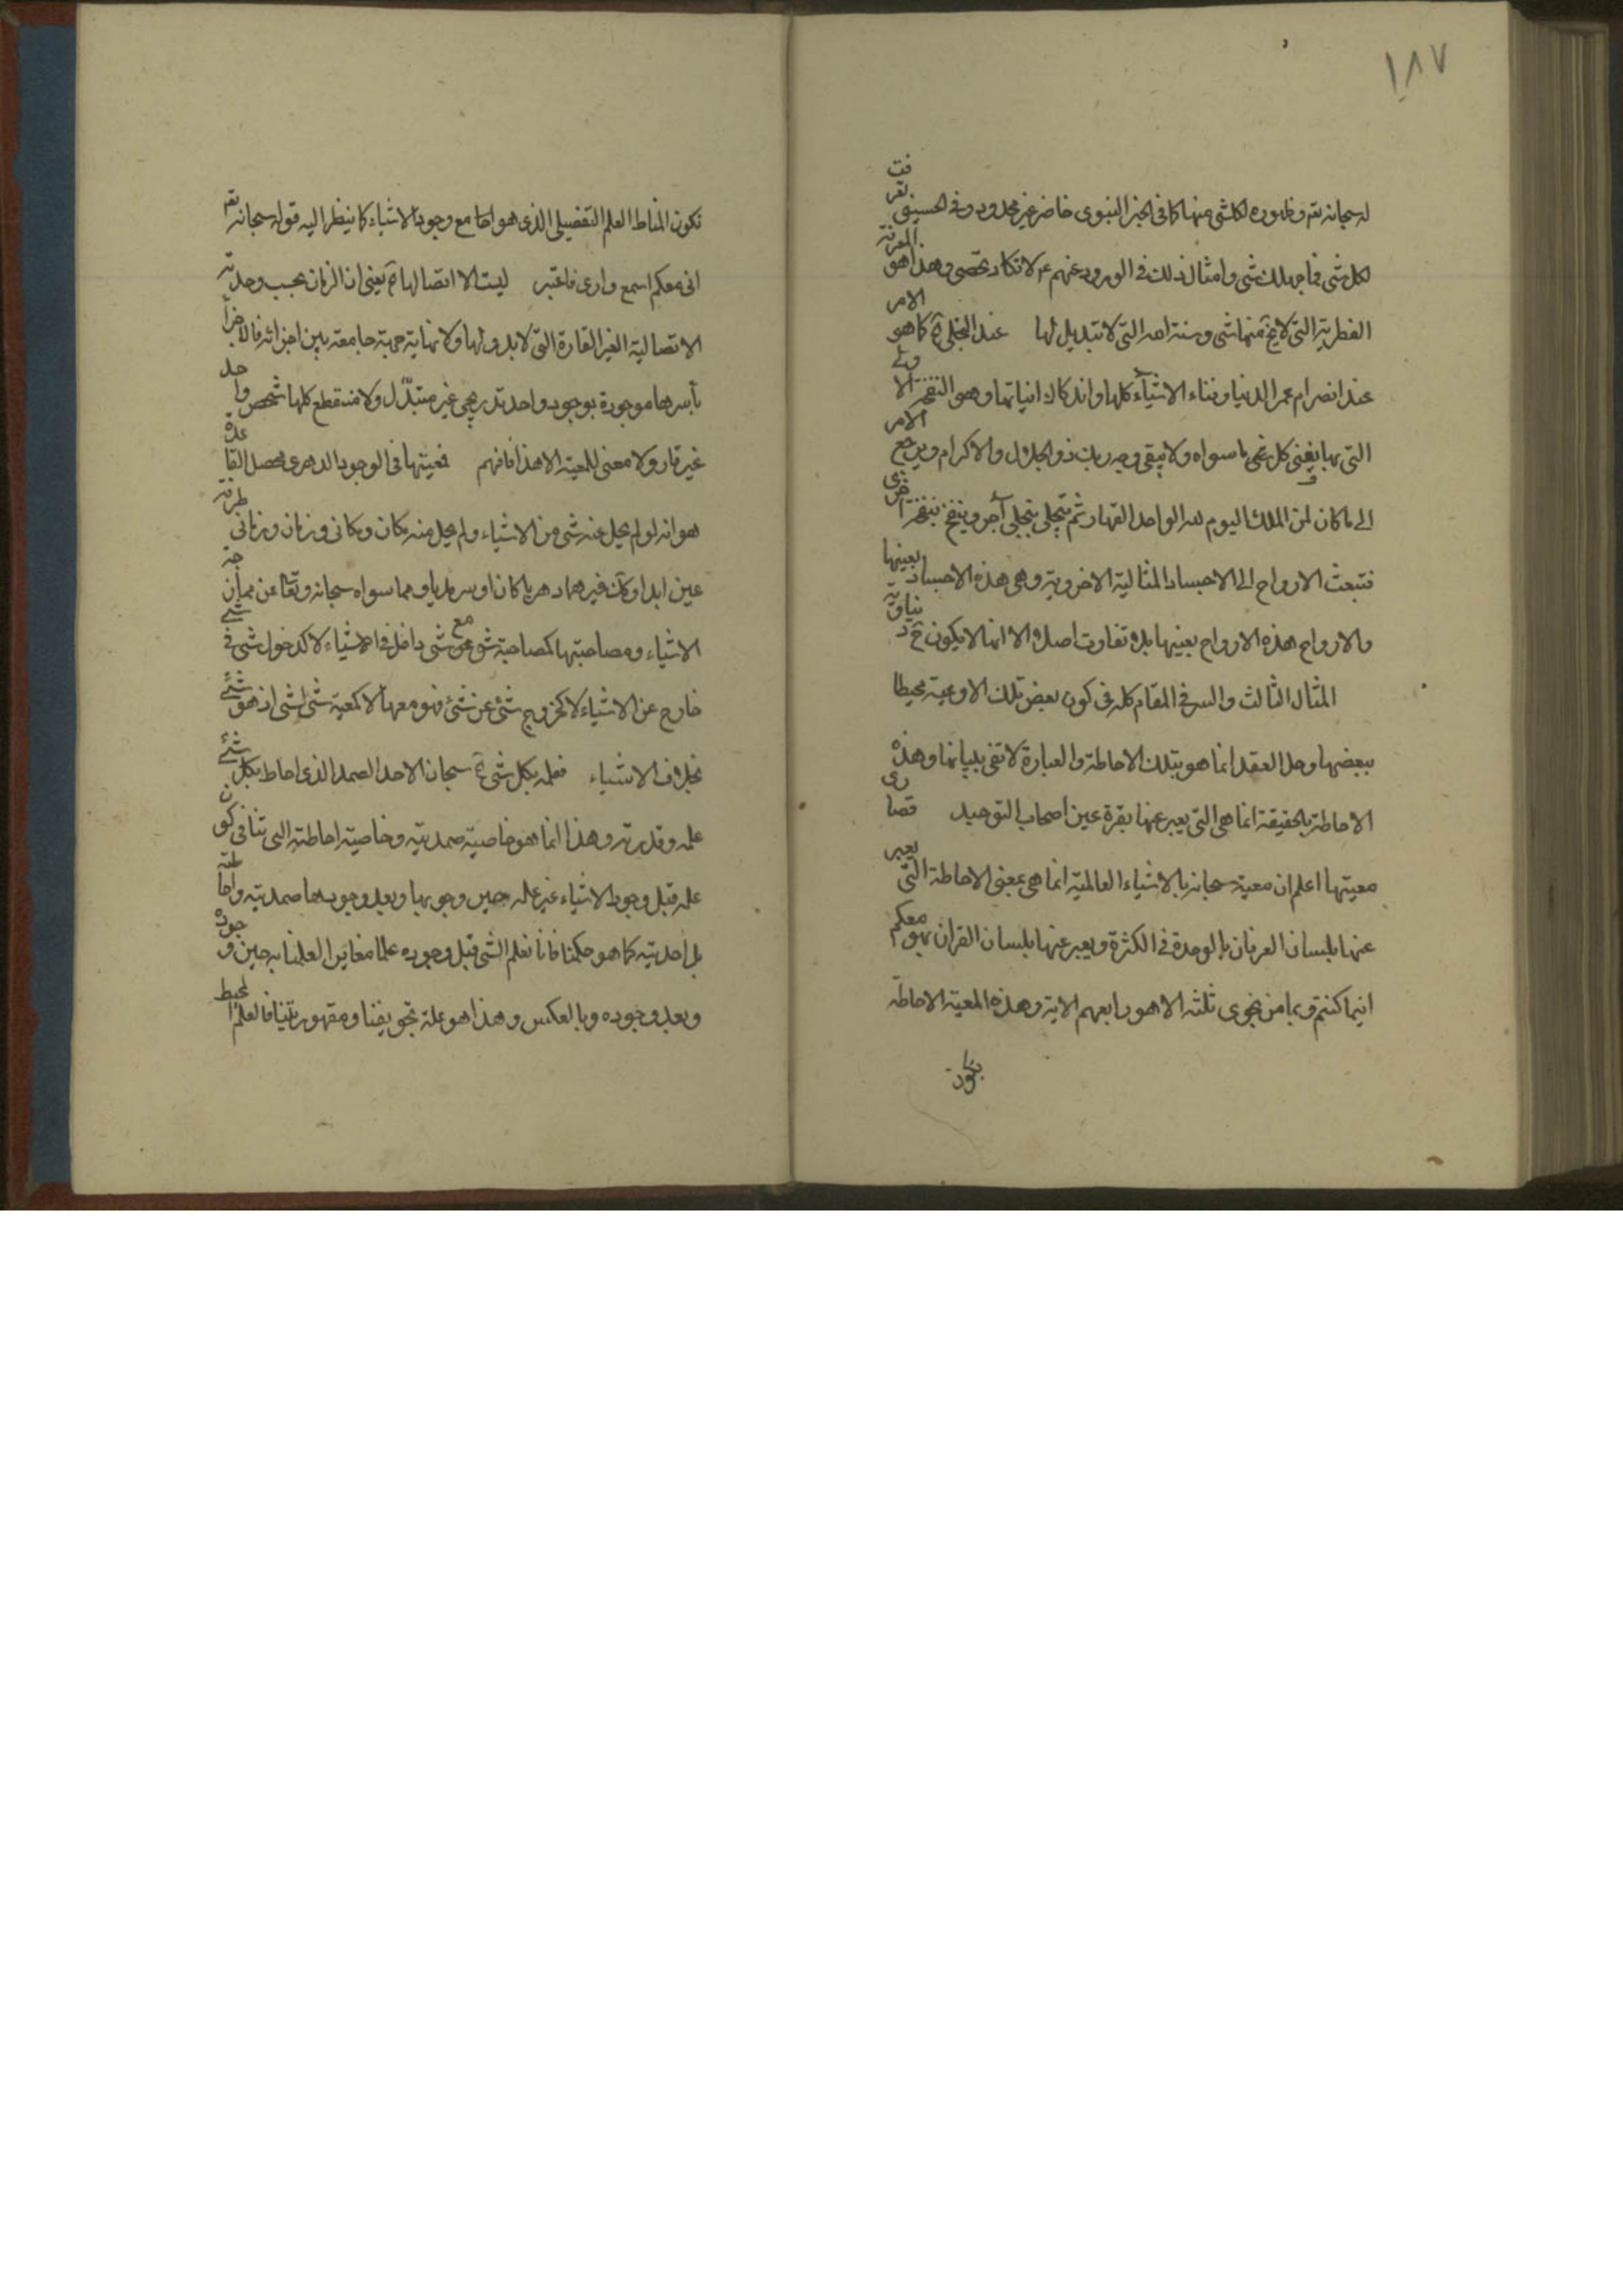 ١٨٧
له سبحانه تم وظهوره لكلشی منها كما فی الخبر النبوی حاضر غير محدود وفی الحسينی تعرفت
لكل شی فما جهلك شی وامثال ذلك فی الورود عنهم ع لا تكاد تحصی وهذا هو المعرفة
الفطرية التی لا يخ منها شی وسنة الله التی لا تبديل لها عند التجلی آه كما هو الامر
عند انصرام عمر الدنيا وفناء الاشياء كلها واندكاك انياتها وهو النفخة الاولی
التی بها يفنی كل شی ما سواه ولا يبقی وجه ربك ذو الجلال والاكرام ويرجع الامر
الی ما كان لمن الملك اليوم لله الواحد القهار ثم يتجلی بتجلی آخر وينفخ بنفخة اخری
فتبعث الارواح الی الاجساد المثالية الاخروية وهی هذه الاجساد بعينها
والارواح هذه الارواح بعينها بلا تفاوت اصلا الا انها لا يكون ح دنياوية
المثال الثالث والسر فی المقام كله فی كون بعض تلك الاوعية محيطا
ببعضها وحل العقد انما هو بتلك الاحاطة والعبارة لا تفی ببيانها وهذه
الاحاطة بالحقيقة انما هی التی يعبر عنها بقرة عين اصحاب التوحيد قصاری
معيتها اعلم ان معية سبحانه بالاشياء العالمية انما هی بمعنی الاحاطة التی يعبر
عنها بلسان العرفان بالوحدة فی الكثرة ويعبر عنها بلسان القران بهو معكم
اينما كنتم وما من نجوی ثلثه الا هو رابعهم الاية وهذه المعية الاحاطة
تكون المناط العلم التفصيلی الذی هو لها مع وجود الاشياء كما ينظر اليه قوله سبحانه تم
انی معكم اسمع واری فاعتبر ليست الا اتصالها آه يعنی ان الزمان بحسب وحدته
الاتصالية الغير القارة التی لا بدو لها ولا نهاية جهة جامعة بين اجزائه فالاجزاء
بأسرها موجودة بوجود واحد تدريجی غير متبدّل ولا منقطع كلها شخص واحد
غير قار ولا معنی للمعية الا هذا فافهم فمعيتها فی الوجود الدهری محصل القاعدة
هو انه لو لم يخل عنه شی من الاشياء ولم يخل منه مكان ومكانی وزمان وزمانی طرفة
عين ابدا وكان فيهما دهريا كان او سرمديا ومما سواه سبحانه وتعا عن ممازجة
الاشياء ومصاحبتها كمصاحبة شی مع شی داخل فی الاشياء لا كدخول شی فی شیء
خارج عن الاشياء لا كخروج شیء عن شیء فهو معها لا كمعية شی لشی اذ هو شیء
بخلاف الاشياء فعلمه بكل شی آه سبحان الاحد الصمد الذی احاط بكل شیء
علمه وقدرته وهذا انما هو خاصية صمديته وخاصية احاطته التی تنافی كون
علمه قبل وجود الاشياء غير علمه حين وجودها وبعد وجودها صمديته واحاطته
بل احديته كما هو حكمنا فانا نعلم الشی قبل وجوده علما مغاير العلمنا به حين وجوده
وبعد وجوده وبالعكس وهذا هو علة تجويفنا ومقهوريتنا فالعلم المحيط